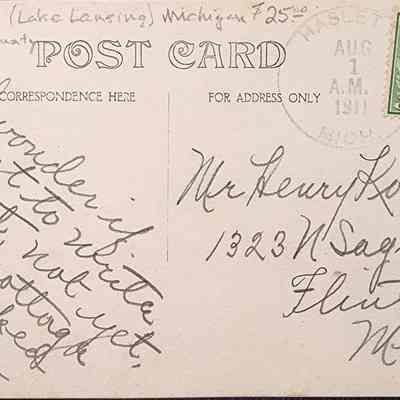 (Lake Lansing) Michigan $25.00
POST CARD
CORRESPONDENCE HERE
FOR ADDRESS ONLY
HASLETT
AUG
1
A.M.
1911
MICH.
wonder if
to write
not yet.
Mr Henry
1323 N Sag
Flint